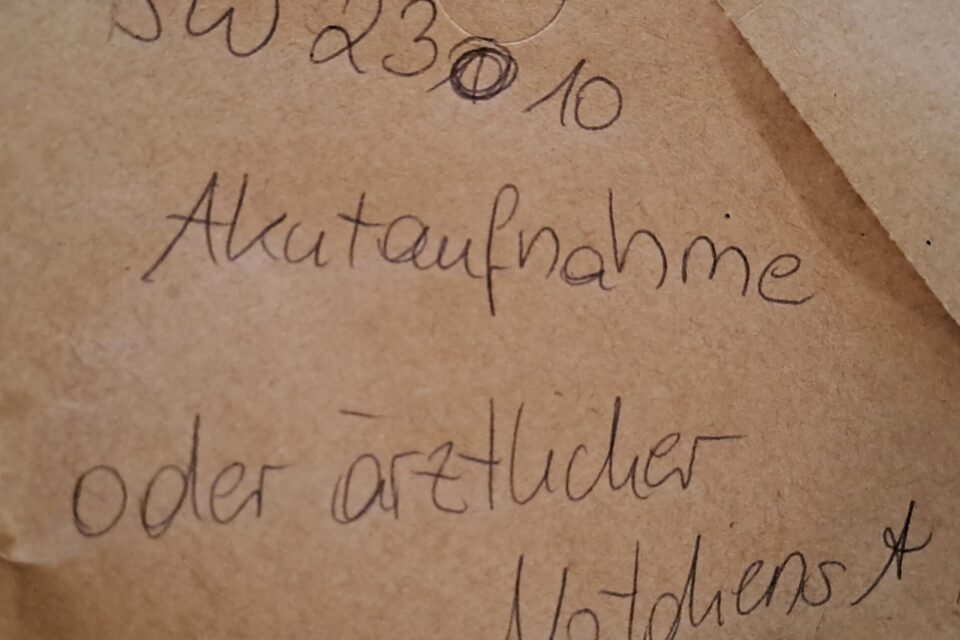 DW 23010
Akutaufnahme
oder ärztlicher
Notdienst